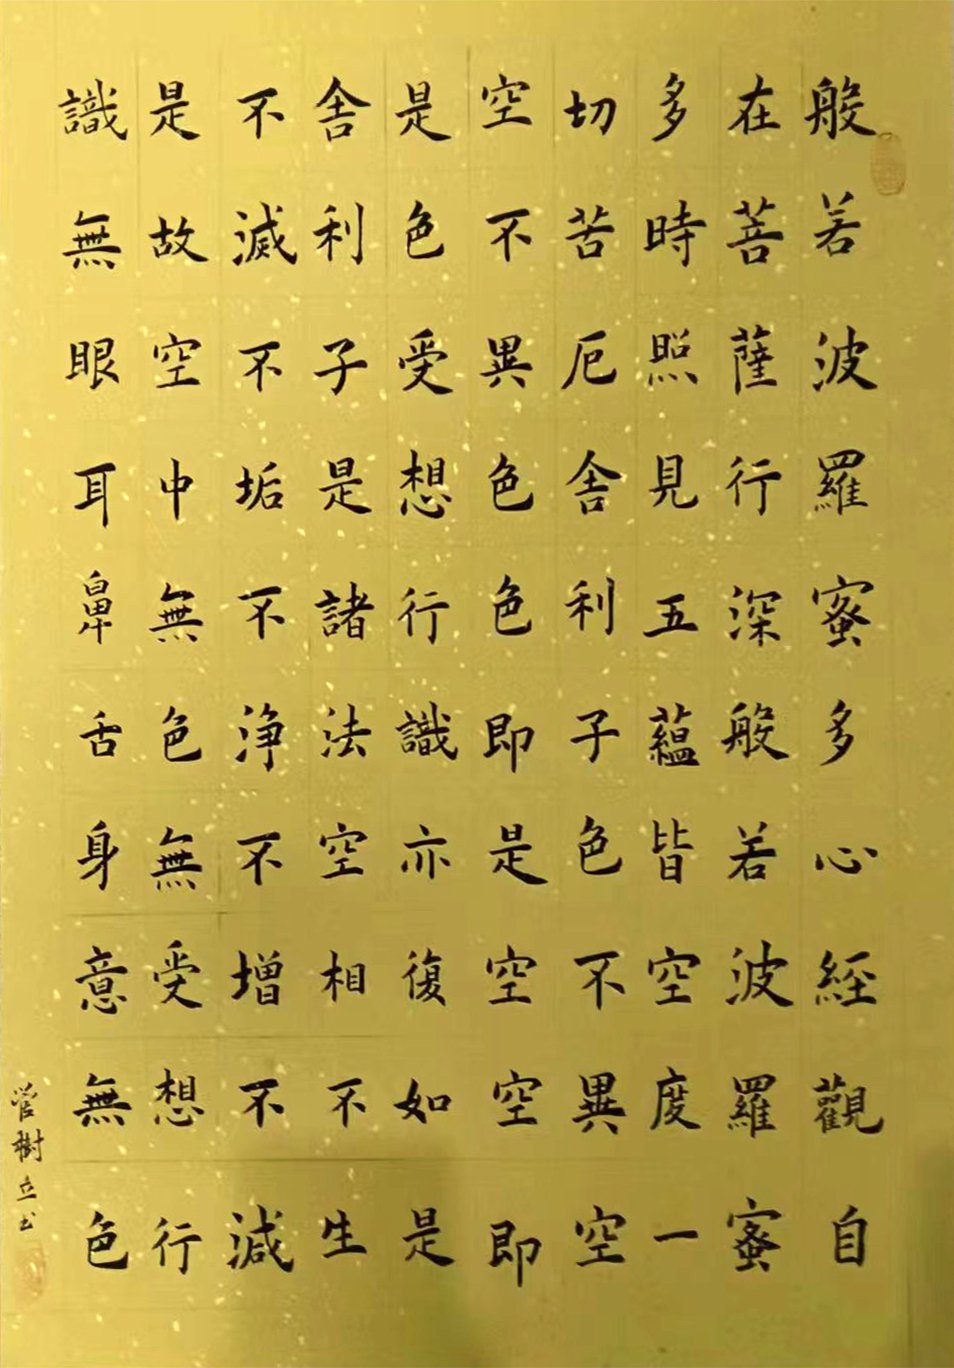 般若波羅蜜多心經觀自
在菩薩行深般若波羅蜜
多時照見五蘊皆空度一
切苦厄舍利子色不異空
空不異色色即是空空即
是色受想行識亦復如是
舍利子是諸法空相不生
不滅不垢不淨不增不減
是故空中無色無受想行
識無眼耳鼻舌身意無色
管樹立書